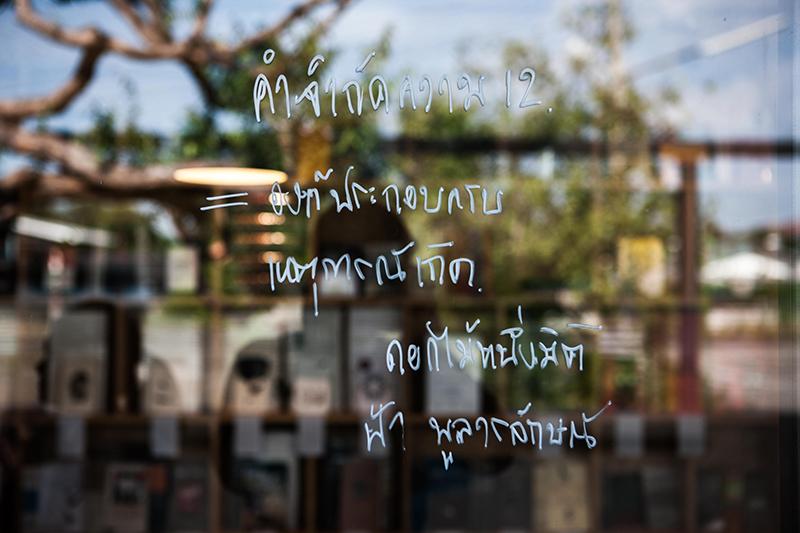 คำจำกัดความ 12.
= องค์ประกอบครบ
เหตุการณ์เกิด.
ดอกไม้หนึ่งมิติ
ฟ้า พูลวรลักษณ์